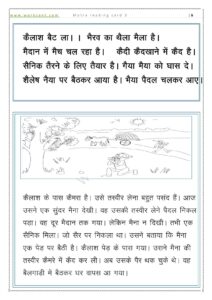 www.worksent.com Matra reading card 5
कैलाश बैट ला। । भैरव का थैला मैला है।
मैदान में मैच चल रहा है। कैदी कैदखाने में कैद है।
सैनिक तैरने के लिए तैयार है। गैया मैया को घास दे।
शैलेष नैया पर बैठकर आया है। मैया पैदल चलकर आए।
कैलाश के पास कैमरा है। उसे तस्वीर लेना बहुत पसंद हैं। आज
उसने एक सुंदर मैना देखी। वह उसकी तस्वीर लेने पैदल निकल
पडा। वह दूर मैदान तक गया। लेकिन मैना न दिखी। तभी एक
सैनिक मिला। जो सैर पर निकला था। उसने बताया कि मैना
एक पेड पर बैठी है। कैलाश पेड के पास गया। उसने मैना की
तस्वीर कैमरे में कैद कर ली। अब उसके पैर थक चुके थे। वह
बैलगाडी में बैठकर घर वापस आ गया।